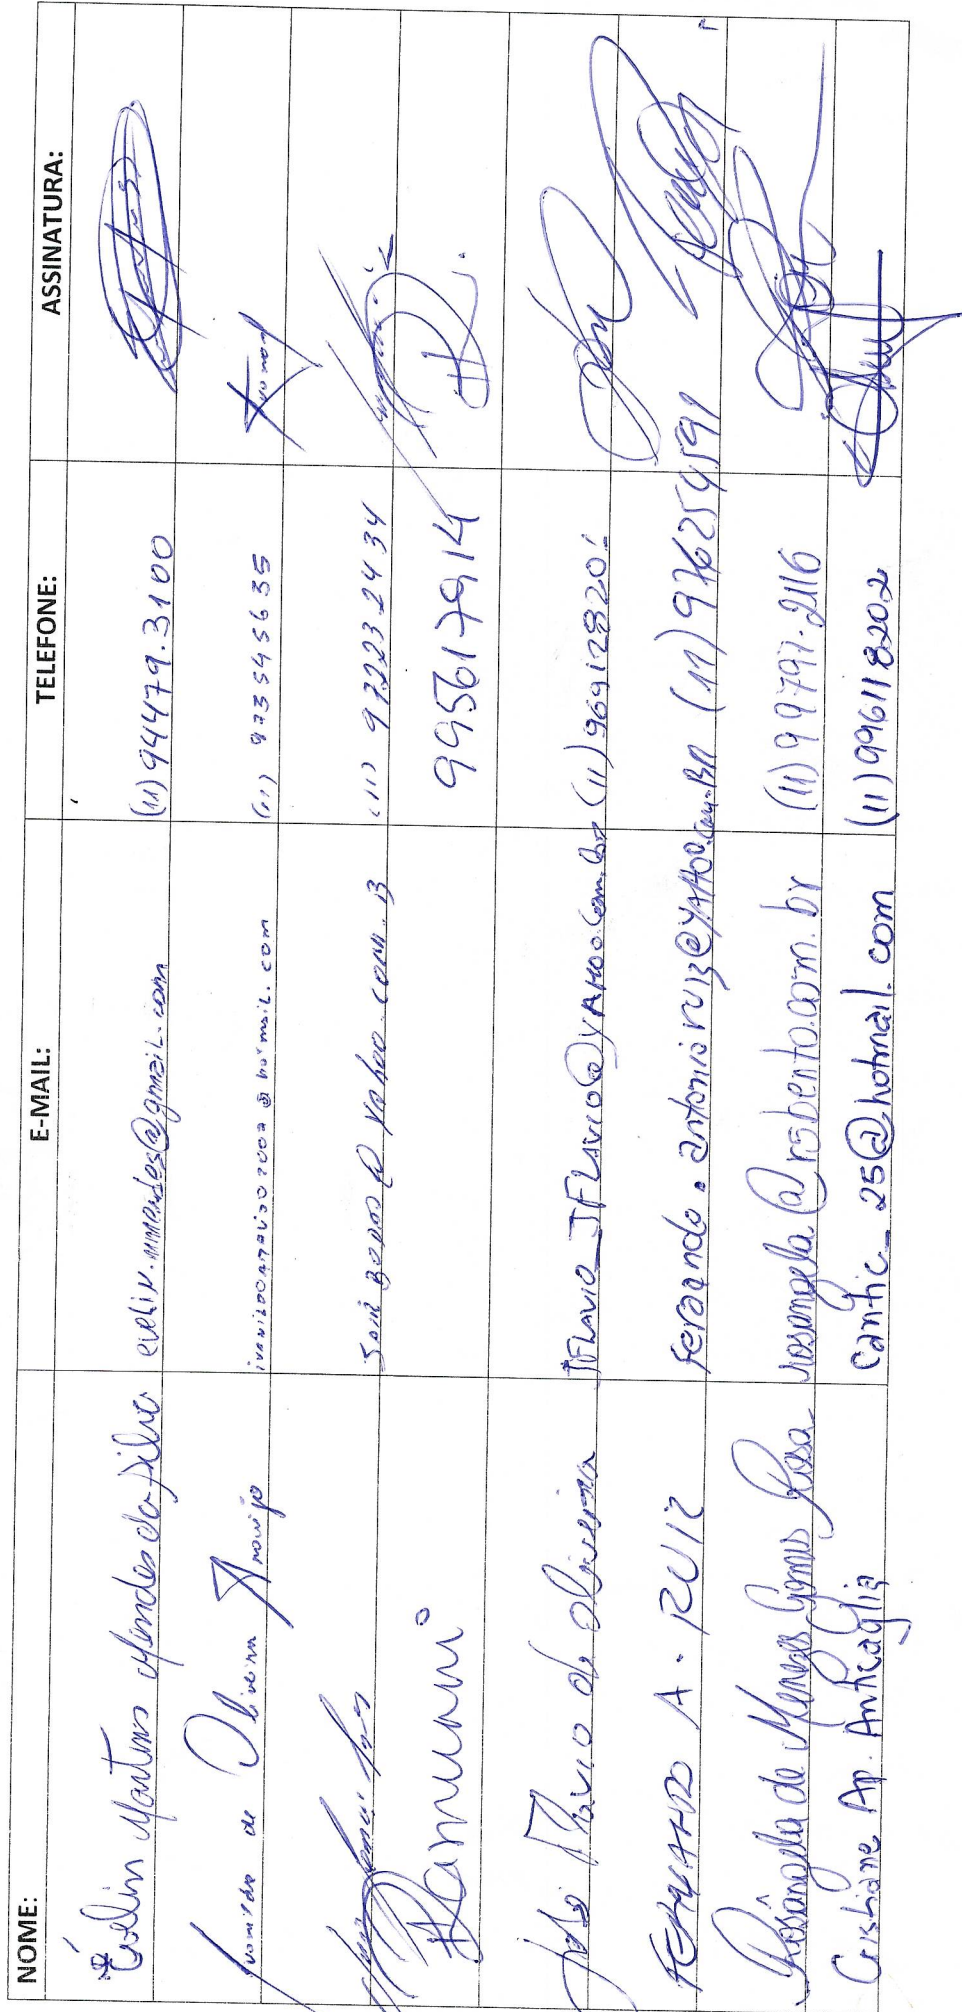 NOME: E-MAIL: TELEFONE: ASSINATURA:
Evelin Martins Mendes da Silva evelin.mmendes@gmail.com (11) 94479.3100
Ivanildo de Oliveira Araujo (11) 973545635
@yahoo.com.b (11) 97223 2434
Ramunni 995617914
José Flavio de Oliveira JFLAVIO_JFLAVIO@YAHOO.Com.br (11) 969128201
FERNANDO A. RUIZ fernando.antonioruiz@YAHOO.Com.BR (11) 976254591
Rosângela de Menezes Gomes Rosa rosangela@rsbento.com.br (11) 99797.2116
Cristiane Ap. Anticaglia cantic_25@hotmail.com (11) 996118202